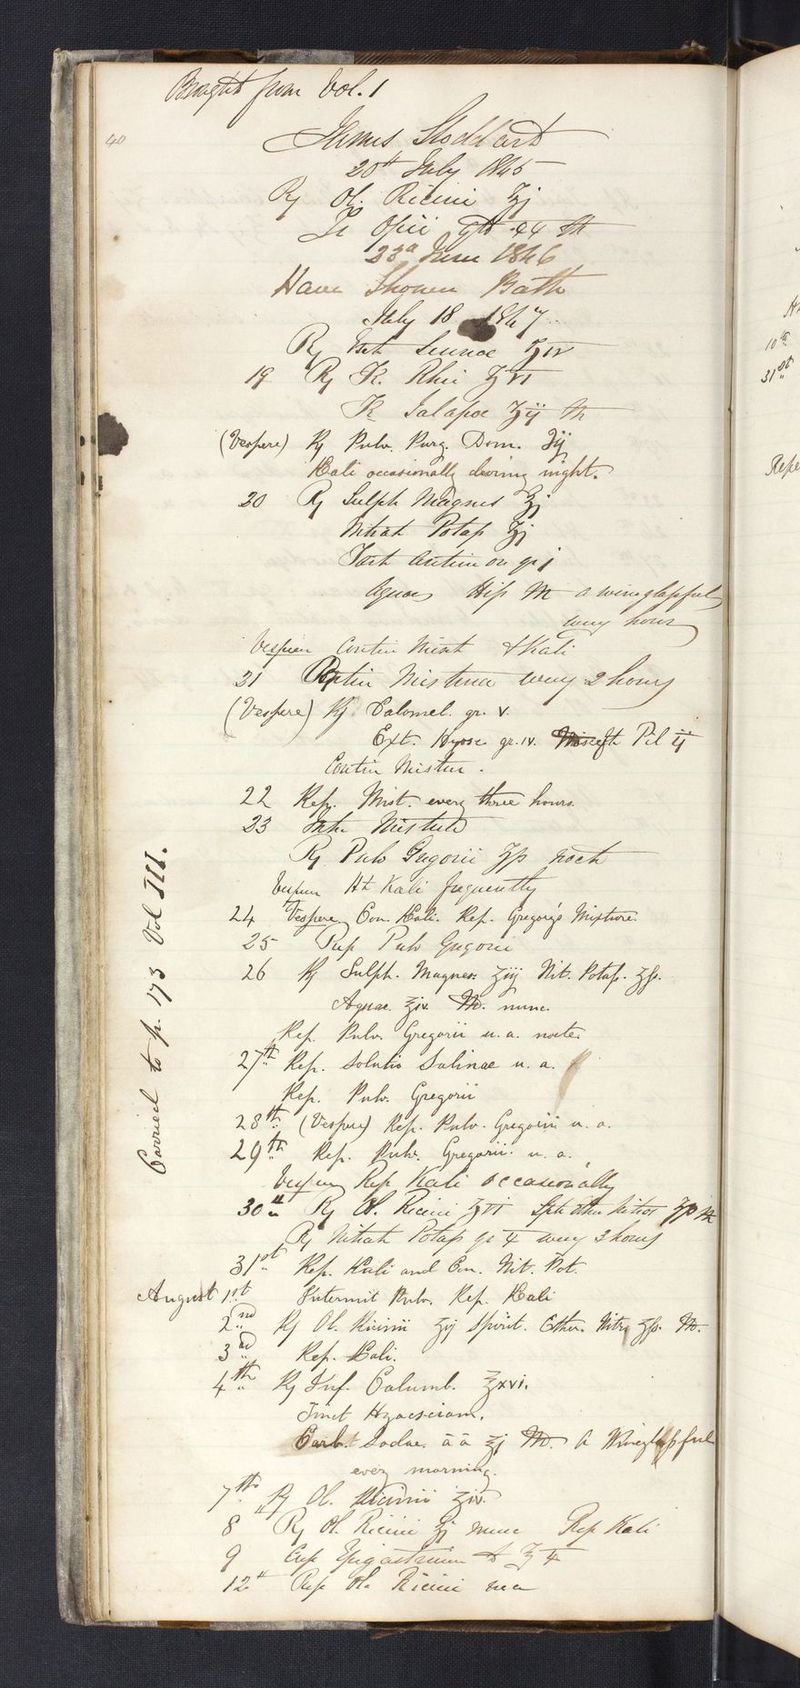 Brought from Vol. 1
40
James Stoddart
20th July 1845
Rx Ol. Ricini ʒj
Tr Opii gtt M
23d June 1846
Have Shower Bath
July 18 1847
Rx Sennae ʒiv
19 Rx Tr. Rhei ʒvi
Tr Jalapae ʒij M
(Vespere) Rx Pulv. Purg. Dom. ʒij
Hali occasionally during night.
20 Rx Sulph Magnes ʒj
Nitrat Potass ʒj
Tart Antimon gr j
Aquae M a wineglassful
every hour
Vespere Contin Mist & Kali
21 Contin Mistura every 2 hours
(Vespere) Rx Calomel. gr. v.
Ext. Hyosc. gr. iv. ft Pil ij
Contin Mistur.
22 Rep. Mist. every three hours.
23 Mistura
Rx Pulv Gregorii ʒss nocte
Vespere Kali frequently
24 Vespere Con. Kali. Rep. Gregory's Mixture.
25 Rep Pulv Gregorii
26 Rx Sulph. Magnes. ʒiij Nit. Potass. ʒss.
Aquae ʒiv. M. nunc.
Rep. Pulv. Gregorii u. a. nocte.
27th Rep. Solutio Salinae u. a.
Rep. Pulv. Gregorii
28th (Vespere) Rep. Pulv. Gregorii u. a.
29th Rep. Pulv. Gregorii. u. a.
Vespere Rep Kali occasionally
30th Rx Ol. Ricini ʒvi Spt Ether Nitros ʒss M
Rx Nitrat Potass gr 4 every 2 hours
31st Rep. Kali and Con. Nit. Pot.
August 1st Intermit Pulv. Rep. Kali
2nd Rx Ol. Ricinii ʒij Spirit. Ether. Nitr. ʒss. M.
3rd Rep. Kali.
4th Rx Inf. Calumb. ʒxvi.
Tinct Hyosciam.
Carb. Sodae. āā ʒj M. A Wineglassful
every morning.
7th Rx Ol. Ricinii ʒiv.
8th Rx Ol. Ricini ʒj nunc Rep Kali
9 Epigastrium
12th Rep Ol. Ricini
Carried to p. 173 Vol III.
10th
31st
Repe